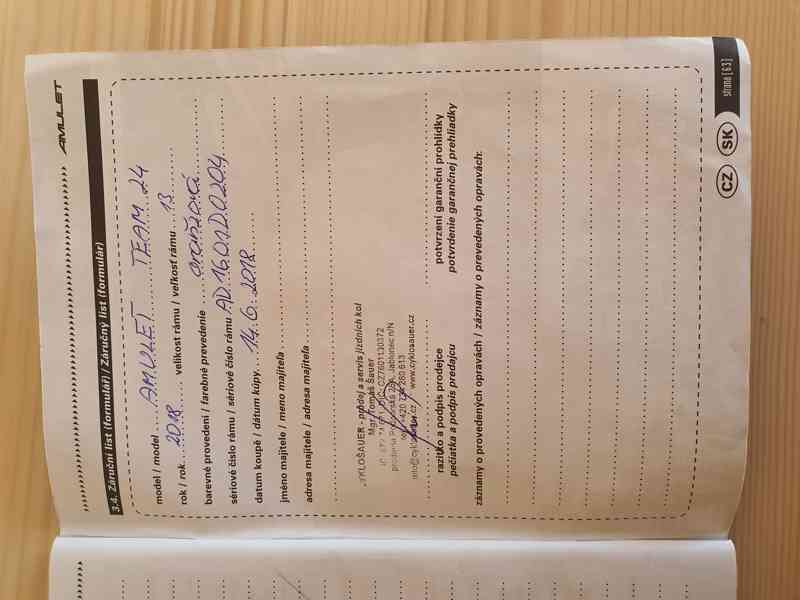 AMULET
3.4. Záruční list (formulář) / Záručný list (formulár)
model / model AMULET TEAM 24
rok / rok 2018 velikost rámu / veľkosť rámu 13
barevné provedení / farebné prevedenie oranžová
sériové číslo rámu / sériové číslo rámu AD1601D0204
datum koupě / dátum kúpy 14.6.2018
jméno majitele / meno majiteľa
adresa majitele / adresa majiteľa
CYKLOŠAUER - prodej a servis jízdních kol
Mgr. Tomáš Šauer
CZ7601130372
Jablonec n/N
www.cyklosauer.cz
razítko a podpis prodejce potvrzení garanční prohlídky
pečiatka a podpis predajcu potvrdenie garančnej prehliadky
záznamy o provedených opravách / záznamy o prevedených opravách:
CZ SK strana [ 63 ]